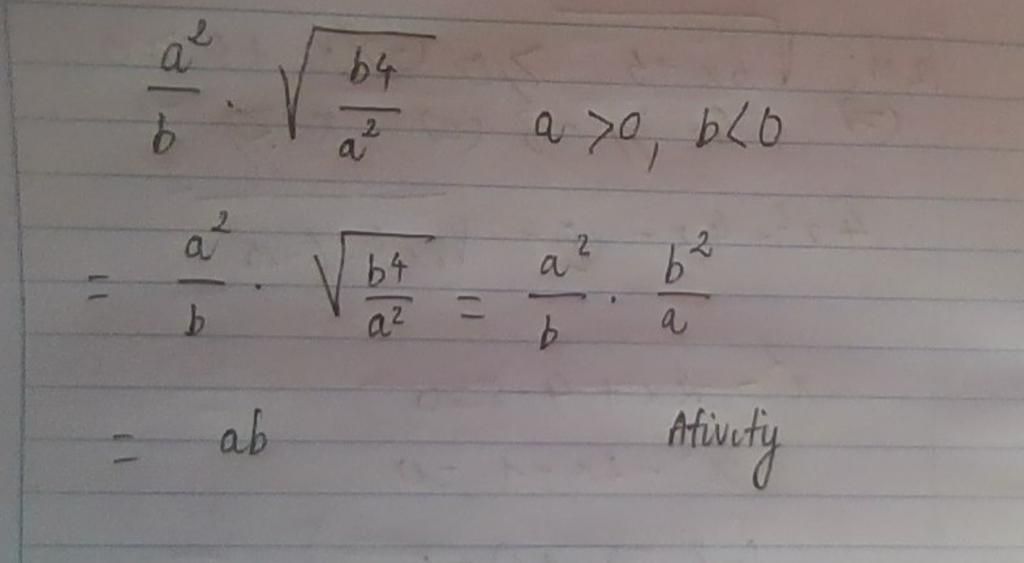 a²/b · √(b4/a²) a >0, b<0
= a²/b · √(b4/a²) = a²/b · b²/a
= ab Ativity